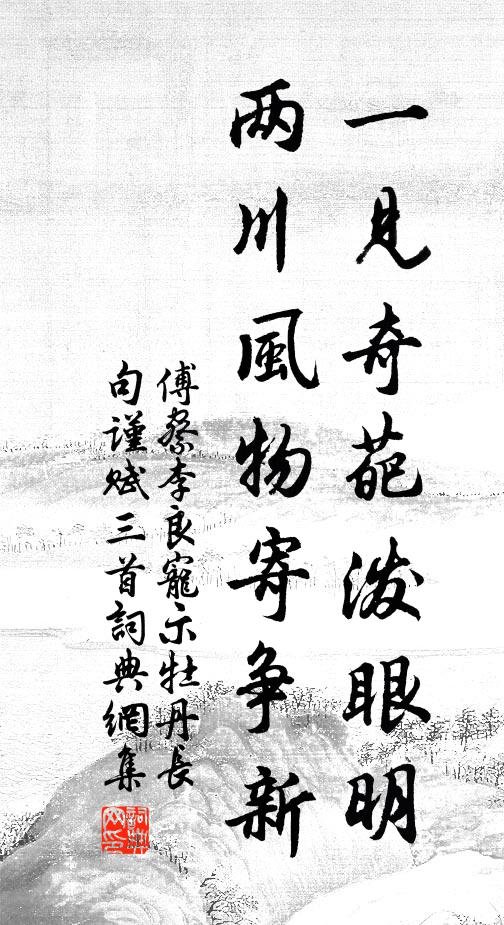 一見奇葩潑眼明
两川風物寄争新
傅察李良寵示牡丹長
句謹賦三首詞典網集